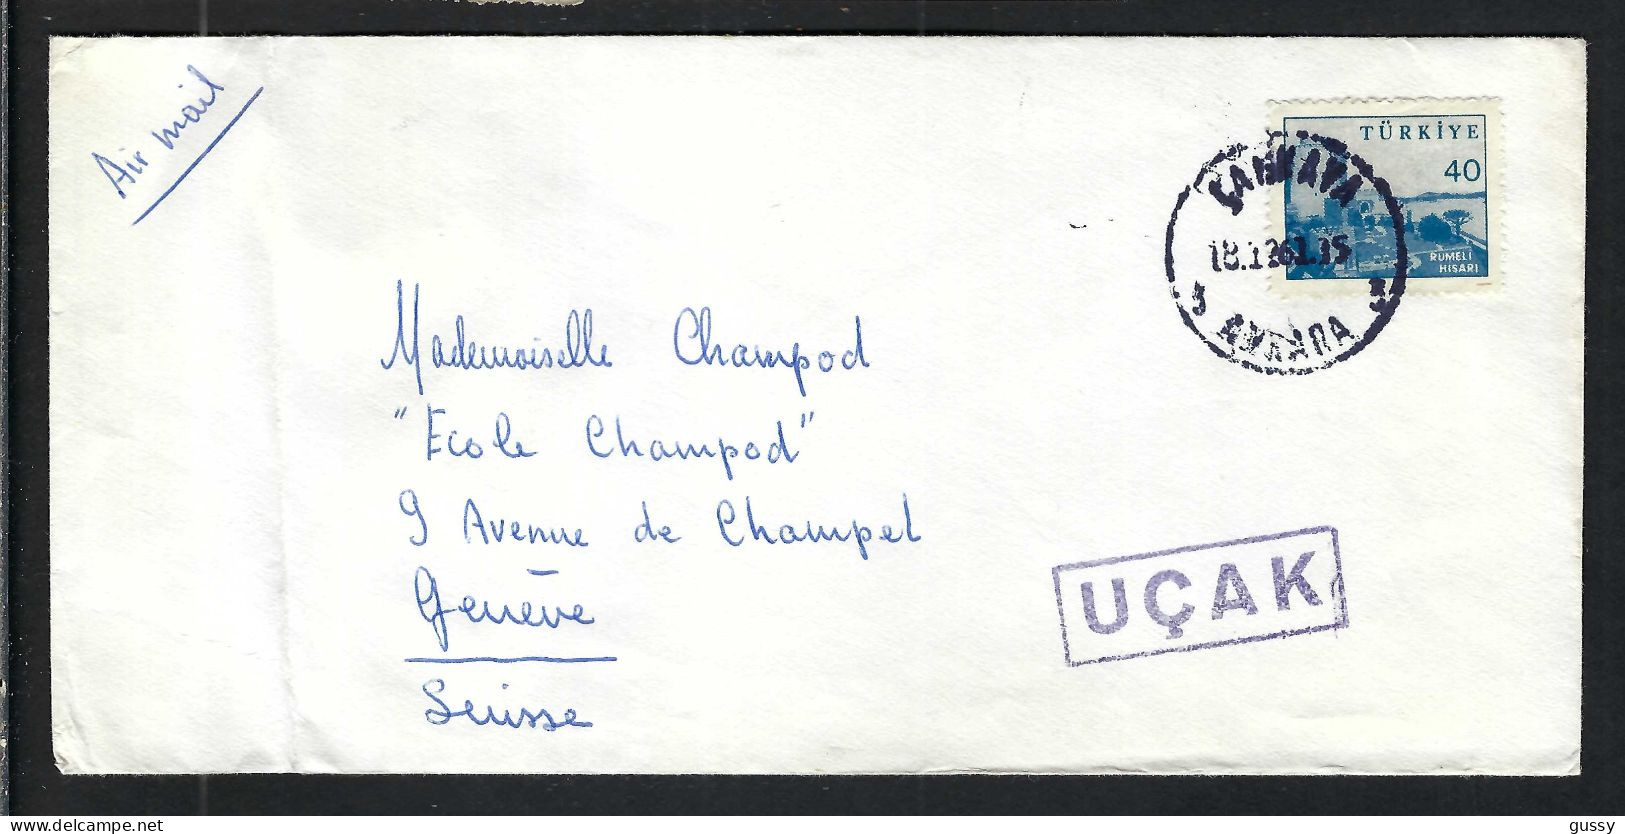 Air mail
TÜRKİYE
40
RUMELİ
HİSARI
ÇANKAYA
3 ANKARA 3
Mademoiselle Champod
"Ecole Champod"
9 Avenue de Champel
Genève
Suisse
UÇAK
delcampe.net
gussy